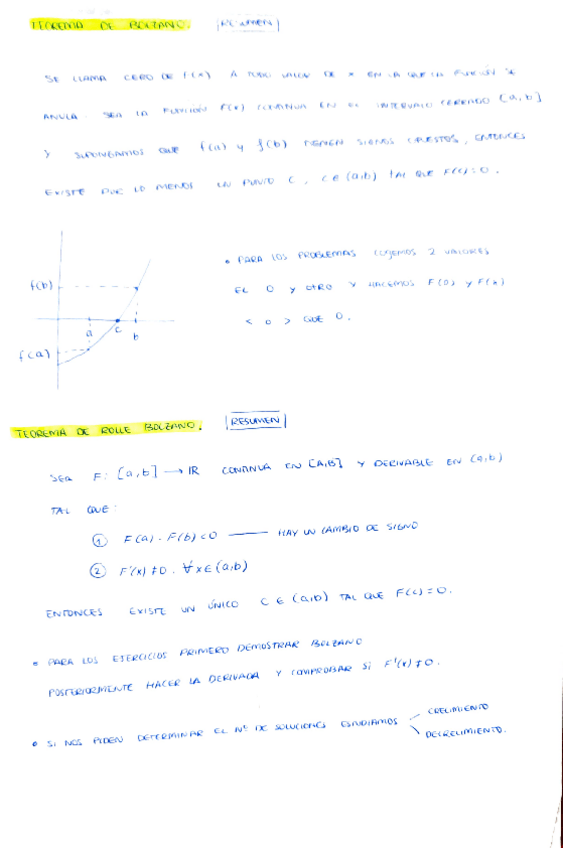 TEOREMA DE BOLZANO. RESUMEN
SE LLAMA CERO DE f(x) A TODO VALOR DE x EN LA QUE LA FUNCIÓN SE
ANULA. SEA LA FUNCIÓN F(x) CONTINUA EN EL INTERVALO CERRADO [a,b]
Y SUPONGAMOS QUE f(a) y f(b) TIENEN SIGNOS OPUESTOS, ENTONCES
EXISTE POR LO MENOS UN PUNTO C, C∈(a,b) TAL QUE F(c)=0.
f(b)
a
c
b
f(a)
• PARA LOS PROBLEMAS COJEMOS 2 VALORES
EL 0 Y OTRO Y HACEMOS F(0) y F(x)
< o > QUE 0.
TEOREMA DE ROLLE BOLZANO. RESUMEN
SEA F: [a,b] → IR CONTINUA EN [A,B] Y DERIVABLE EN (a,b)
TAL QUE:
① F(a) · F(b) < 0 —— HAY UN CAMBIO DE SIGNO
② F'(x) ≠ 0. ∀x∈(a,b)
ENTONCES EXISTE UN ÚNICO C ∈ (a,b) TAL QUE F(c)=0.
• PARA LOS EJERCICIOS PRIMERO DEMOSTRAR BOLZANO
POSTERIORMENTE HACER LA DERIVADA Y COMPROBAR SI F'(x) ≠ 0.
• SI NOS PIDEN DETERMINAR EL Nº DE SOLUCIONES ESTUDIAMOS
CRECIMIENTO
DECRECIMIENTO.